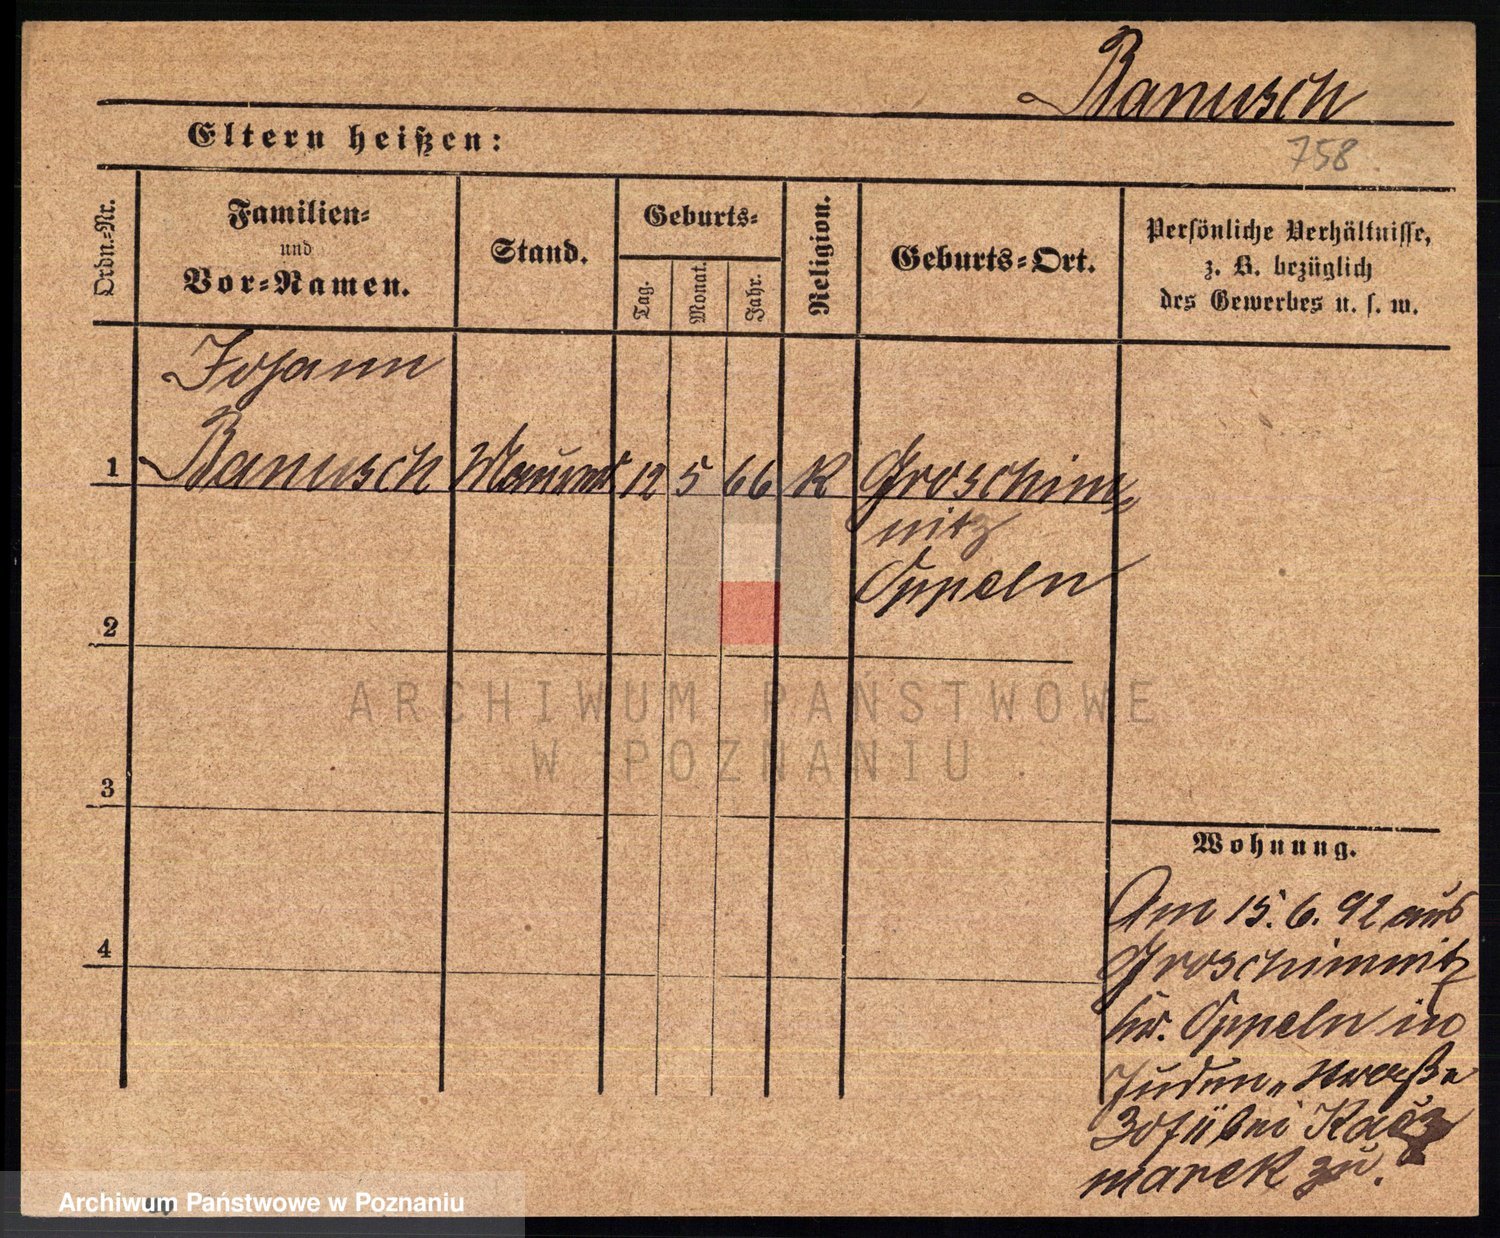 Banusch
Eltern heißen:
758
Ordn.-Nr.
Familien-
und
Vor-Namen.
Stand.
Geburts-
Tag.
Monat.
Jahr.
Religion.
Geburts-Ort.
Persönliche Verhältnisse,
z. B. bezüglich
des Gewerbes u. s. w.
Johann
1 Banusch Maurer 12 5 66 K Groschim-
nitz
Oppeln
2
ARCHIWUM PAŃSTWOWE
W POZNANIU
3
Wohnung.
4
Am 15. 6. 92 aus
Groschimnitz
Kr. Oppeln in
Juden-straße
bei Kacz
marek zu.
Archiwum Państwowe w Poznaniu